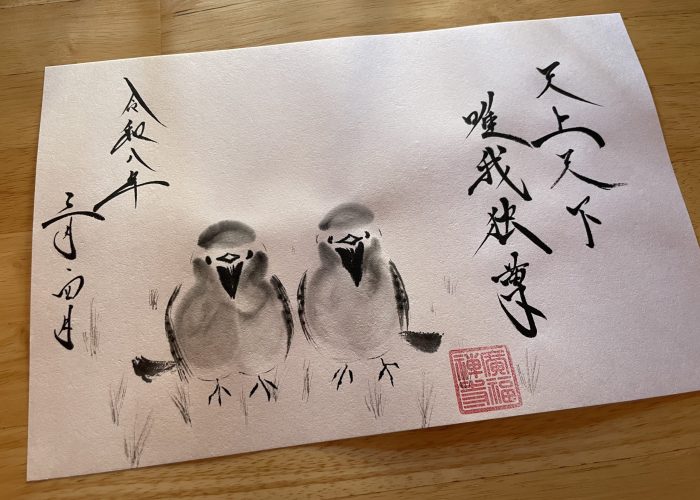 天上天下
唯我独尊
令和八年
三月四月
廣福
禅寺